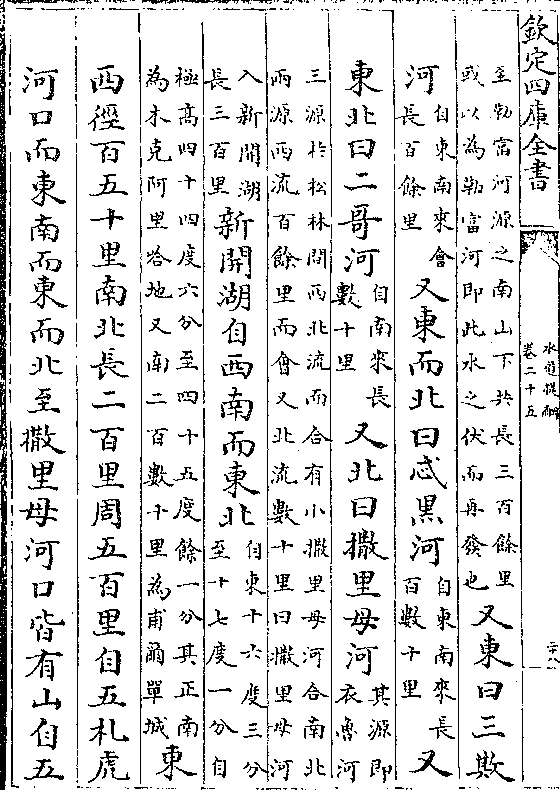 欽定四庫全書
水道提綱
卷二十五
至勒富河源之南山下共長三百餘里
或以為勒富河即此水之伏而再發也
又東曰三欺
河
自東南來會
長百餘里
又東而北曰忒黑河
自東南來長
百數十里
又
東北曰二哥河
自南來長
數十里
又北曰撒里母河
其源即
衣魯河
三源於松林間西北流而合有小撒里母河合南北
兩源西流百餘里而會又北流數十里曰撒里母河
入新開湖
長三百里
新開湖自西南而東北
自東十六度三分
至十七度一分自
極高四十四度六分至四十五度餘一分其正南
為木克阿里峆地又南二百數十里為甫爾單城
東
西徑百五十里南北長二百里周五百里自五札虎
河口而東南而東而北至撒里母河口皆有山自五